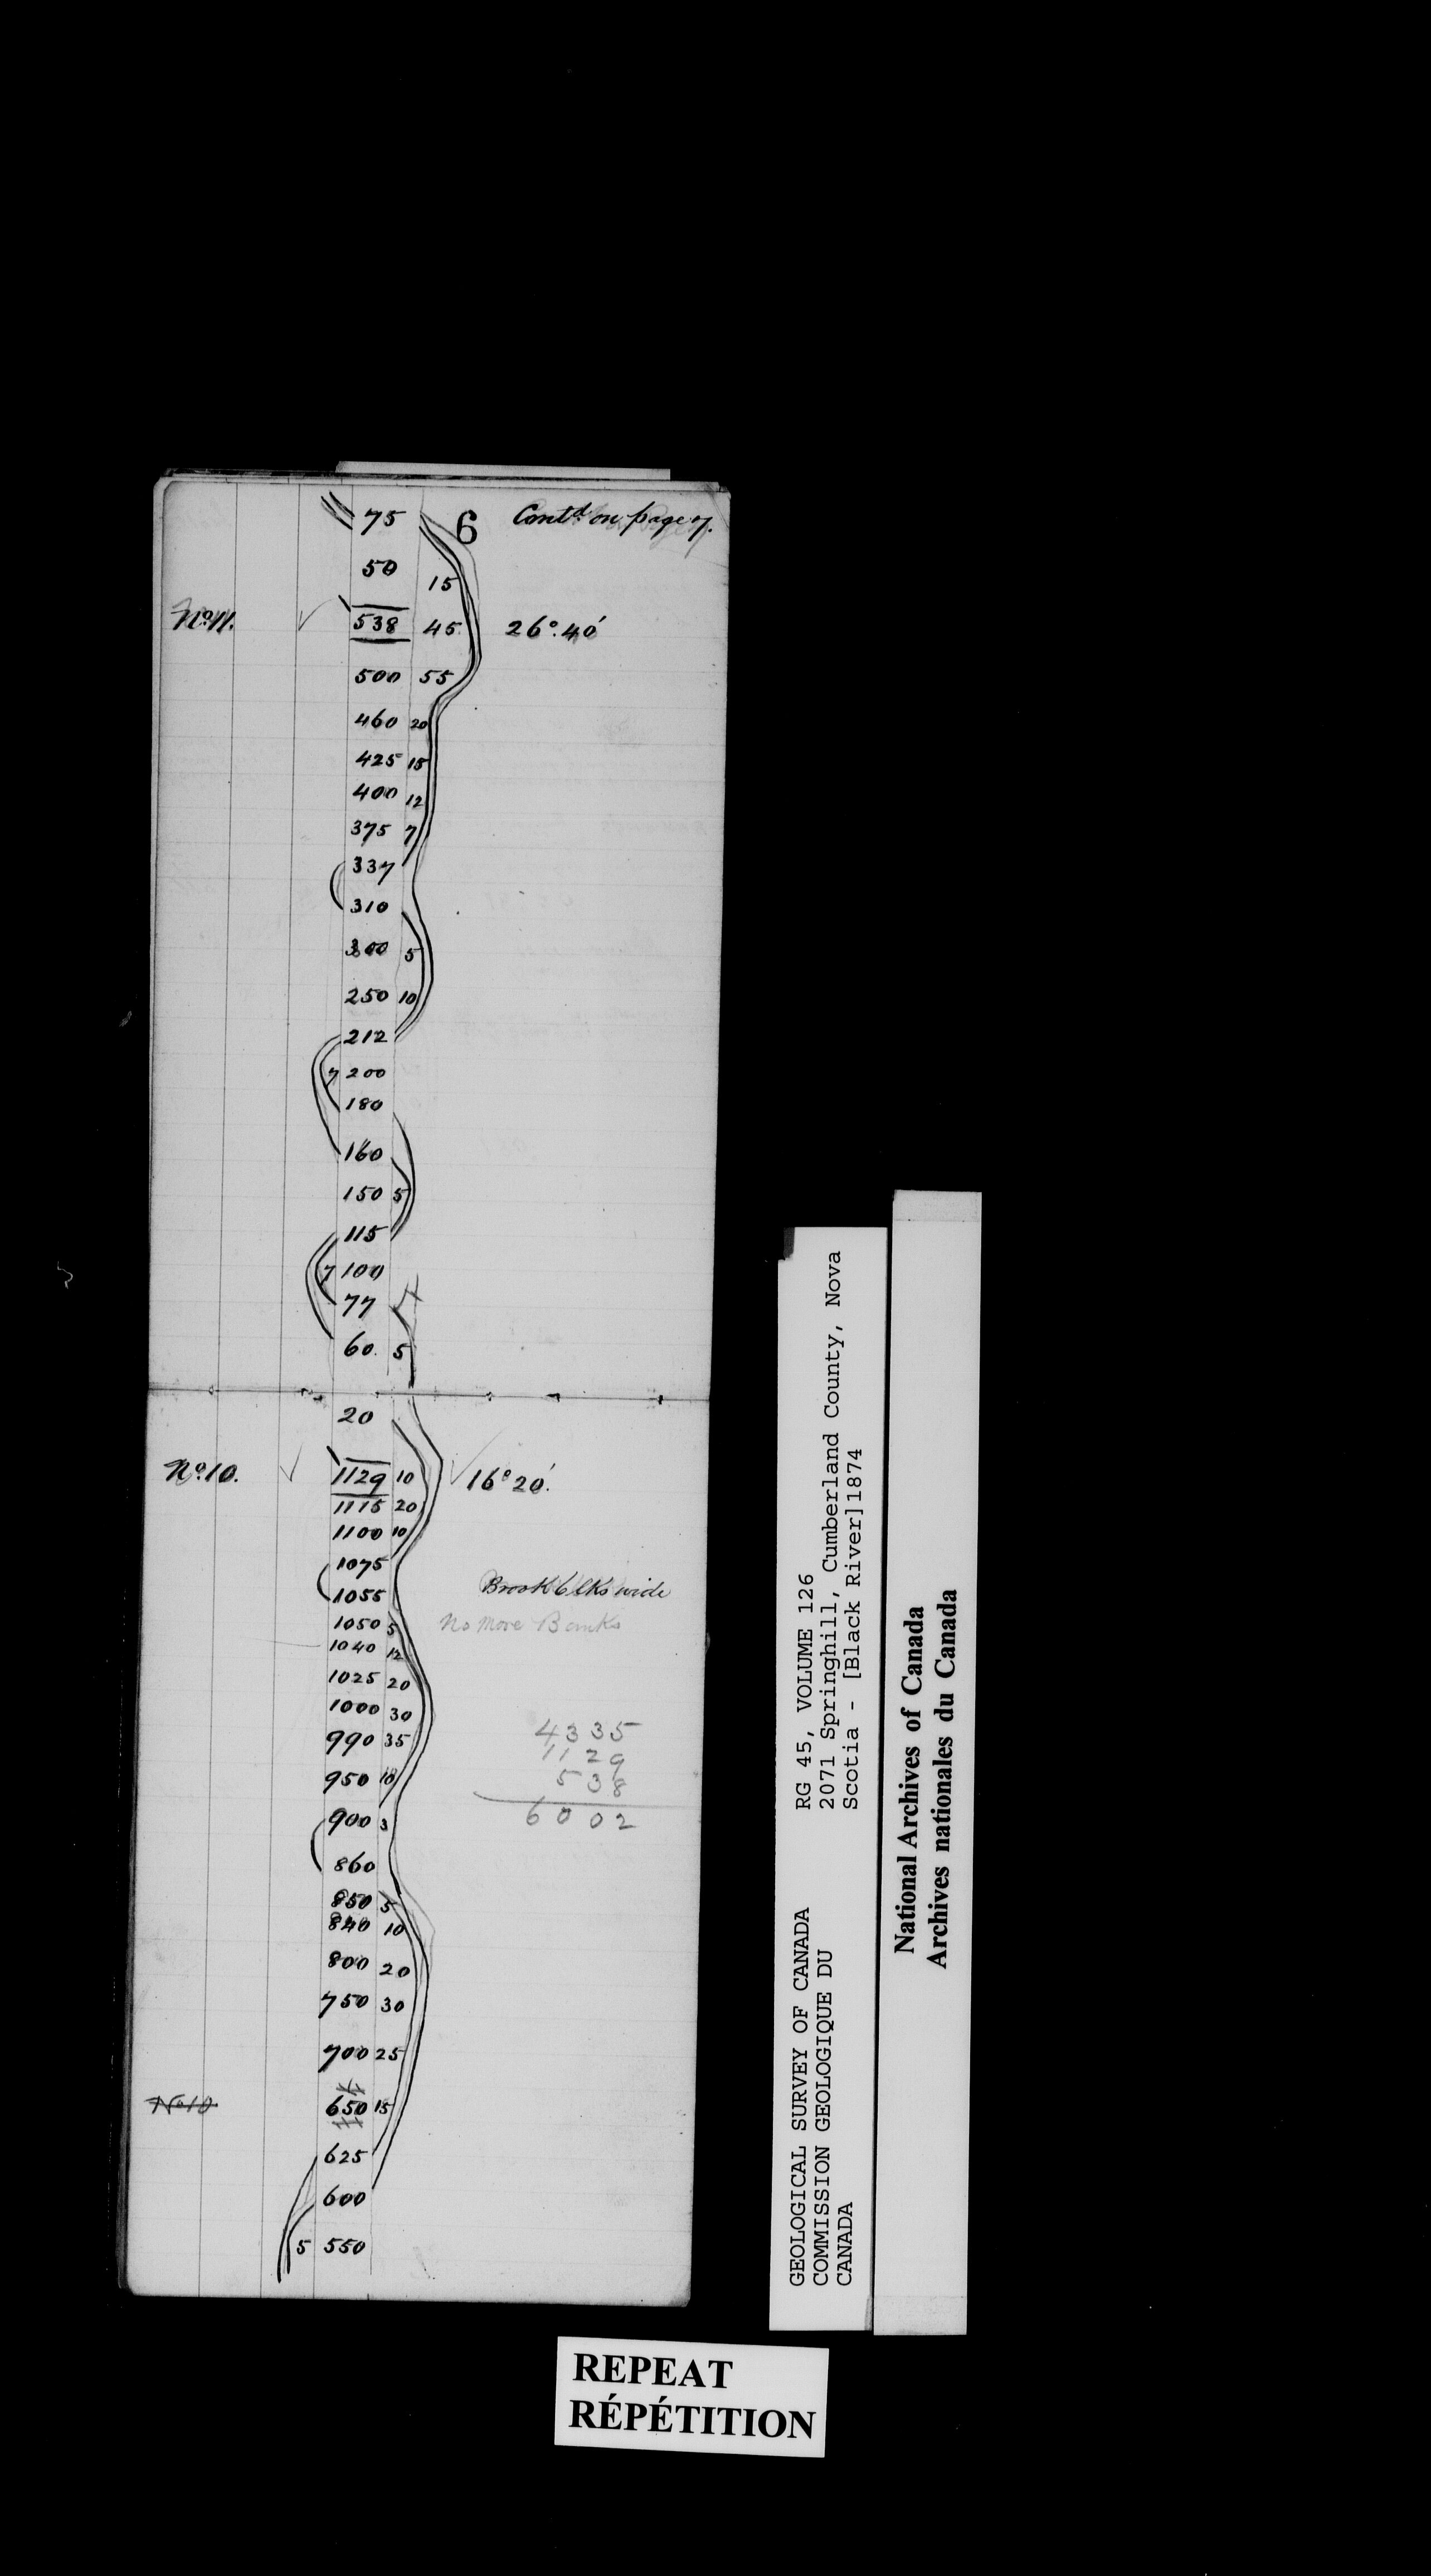 75 6 Contd. on page 7.
50 15
No. 11. 538 45 26°.40'
500 55
460 20
425 15
400 12
375 7
337
310
300 5
250 10
212
7 200
180
160
150 5
115
7 100
77
60. 5
20
No. 10. 1129 10 16°20'.
1115 20
1100 10
1075
1055 Brook 6 lks wide
1050 5 No More Banks
1040 12
1025 20
1000 30
990 35
950 10
900 3
860
850 5
840 10
800 20
750 30
700 25
No 10 650 15
625
600
5 550
4335
1129
538
6002
GEOLOGICAL SURVEY OF CANADA
COMMISSION GEOLOGIQUE DU
CANADA
RG 45, VOLUME 126
2071 Springhill, Cumberland County, Nova
Scotia - [Black River]1874
National Archives of Canada
Archives nationales du Canada
REPEAT
RÉPÉTITION